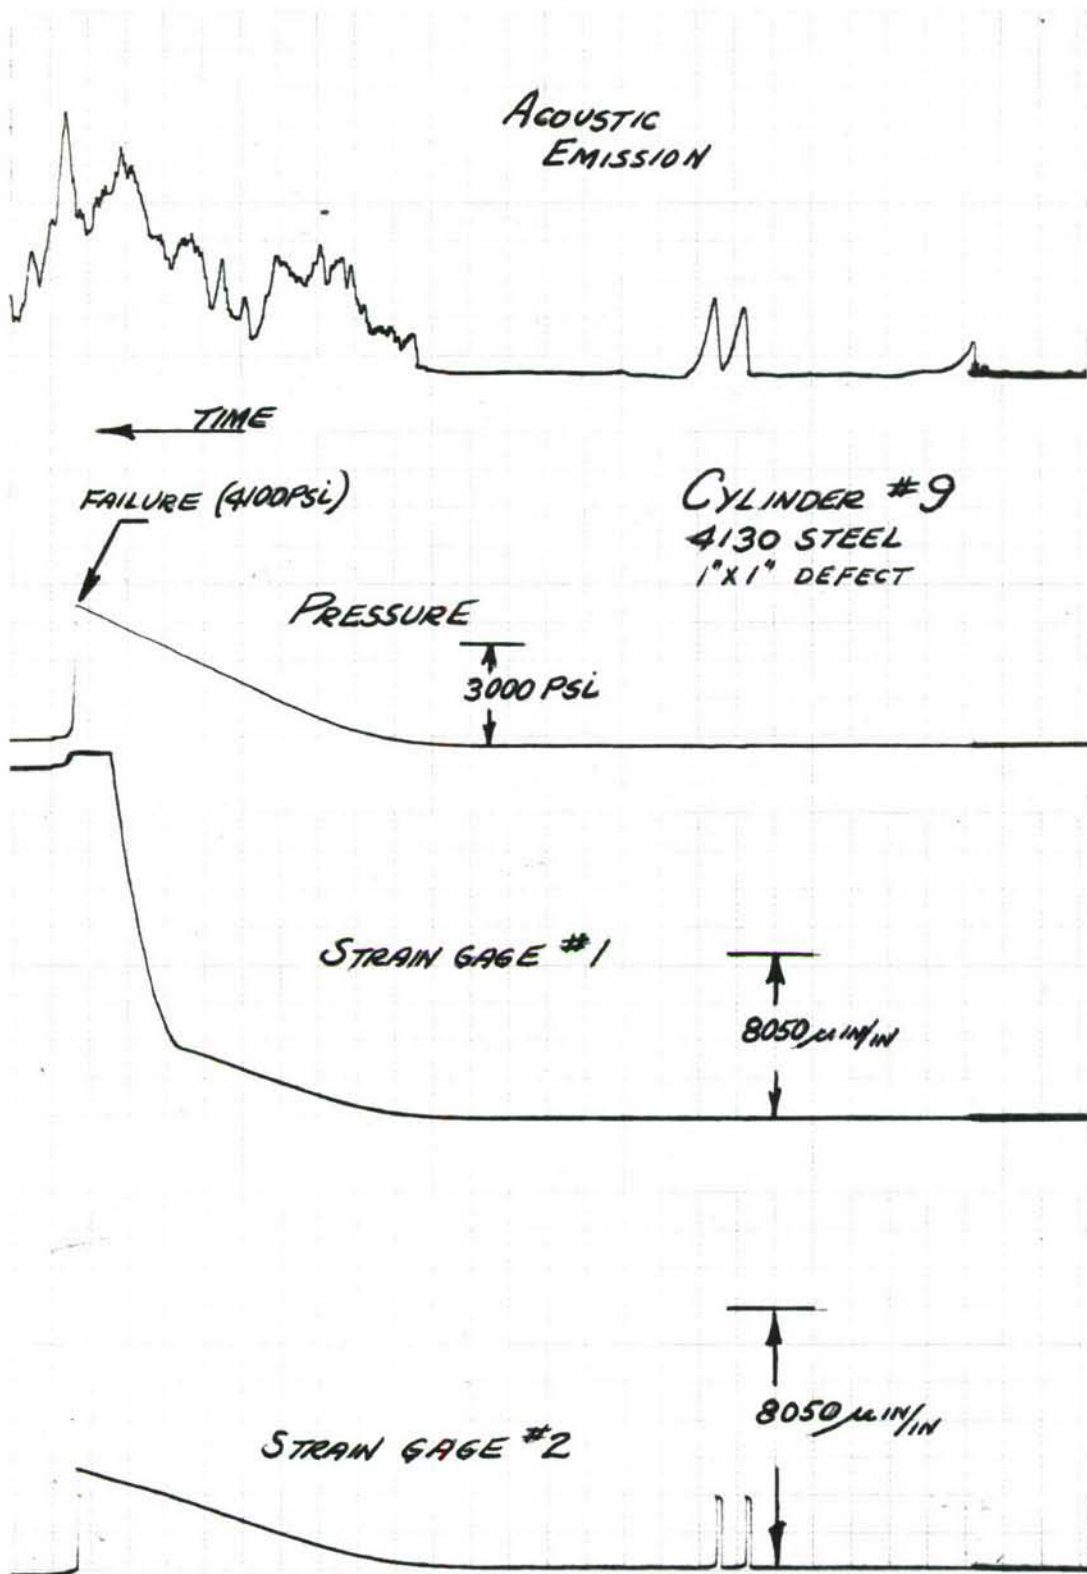 ACOUSTIC
EMISSION
TIME
FAILURE (4100PSi)
CYLINDER #9
4130 STEEL
1"X1" DEFECT
PRESSURE
3000 PSi
STRAIN GAGE #1
8050 µIN/IN
8050 µIN/IN
STRAIN GAGE #2